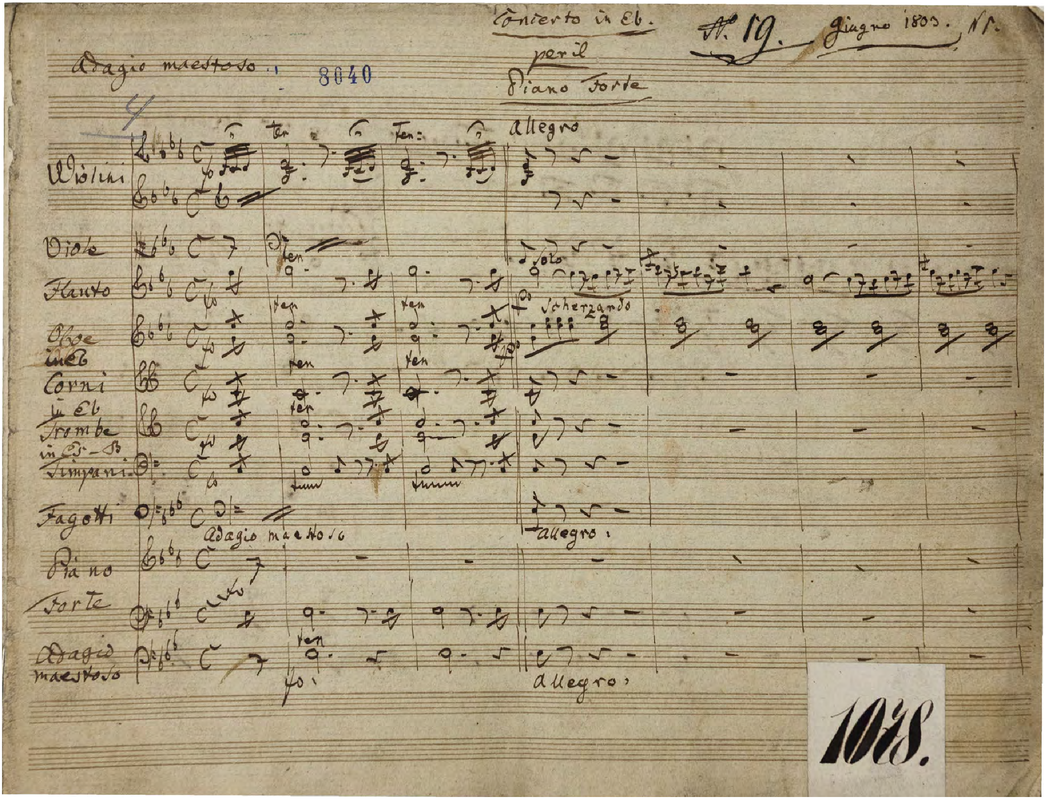 Concierto in Eb.
No. 19. Giugno 1803. N1.
per il
Adagio maestoso 8640 Piano Forte
4
ten ten: Allegro
Violini
Viole
ten Solo
Flauto
ten ten Scherzando
Oboe
in Eb
ten ten
Corni
in Eb
ten
Trombe
in Es-B
Timpani
Fagotti
Adagio maestoso Allegro:
Piano
Forte
ten
Adagio
maestoso
fo: Allegro:
1078.